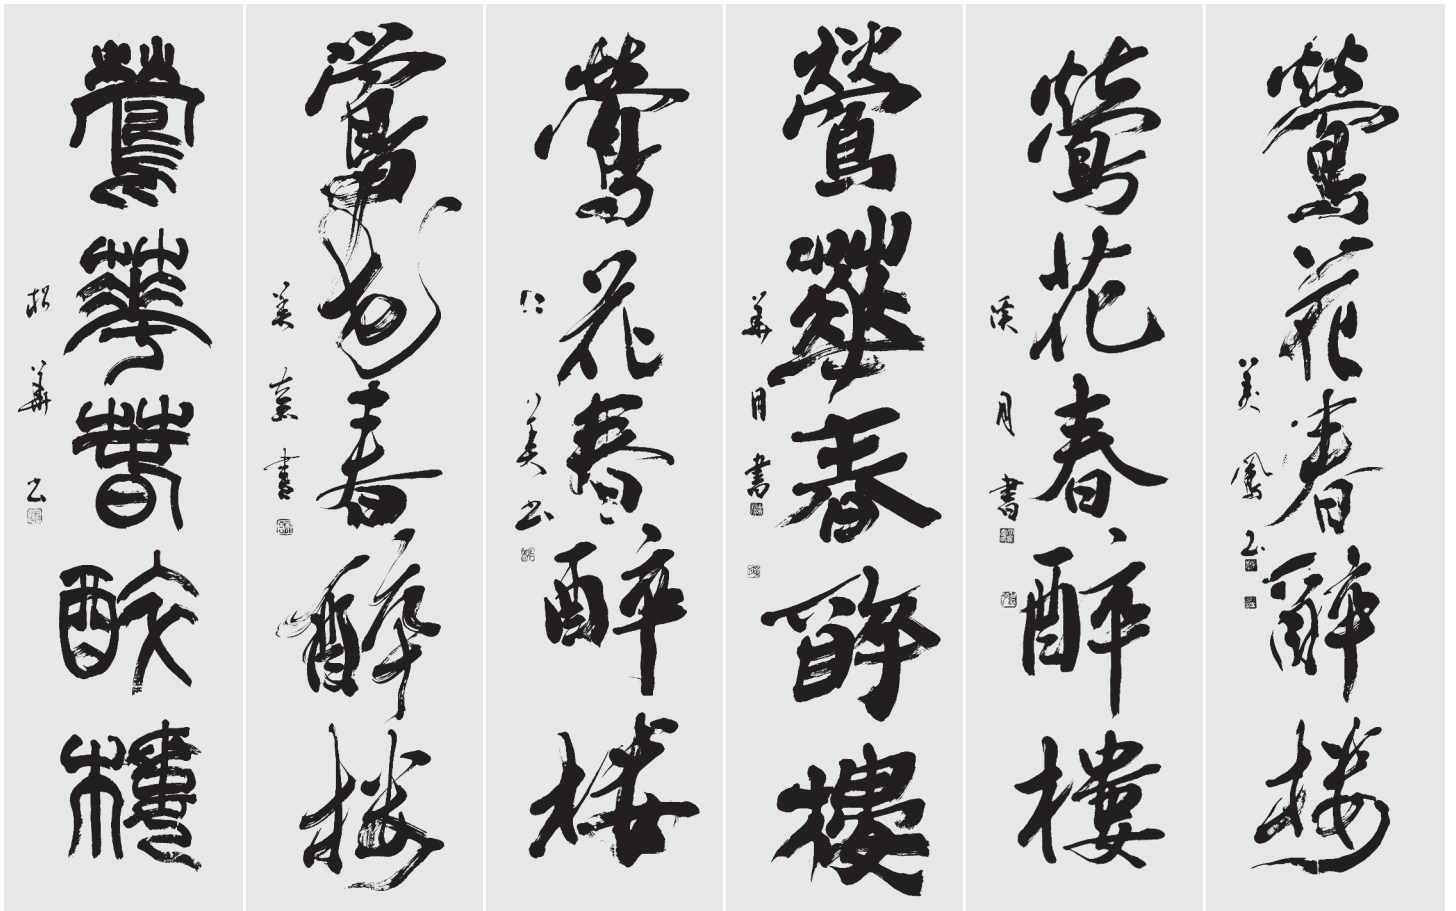 鶯花春酔楼
美鳳書
鶯花春酔樓
溪月書
鶯華春酔樓
華月書
鶯花春酔楼
仁美书
鶯花春酔楼
美京書
鶯華春酔樓
松華书